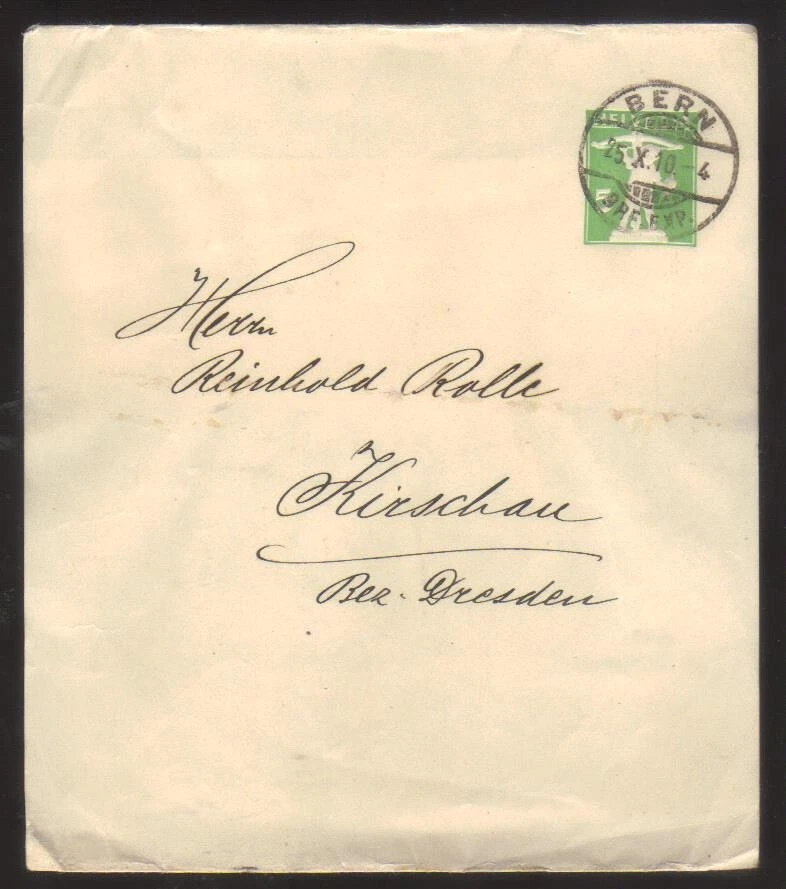 BERN
HELVETIA
25.X.10.-4
5
BRF.EXP.
Herrn
Reinhold Rolle
Kirschau
Bez. Dresden